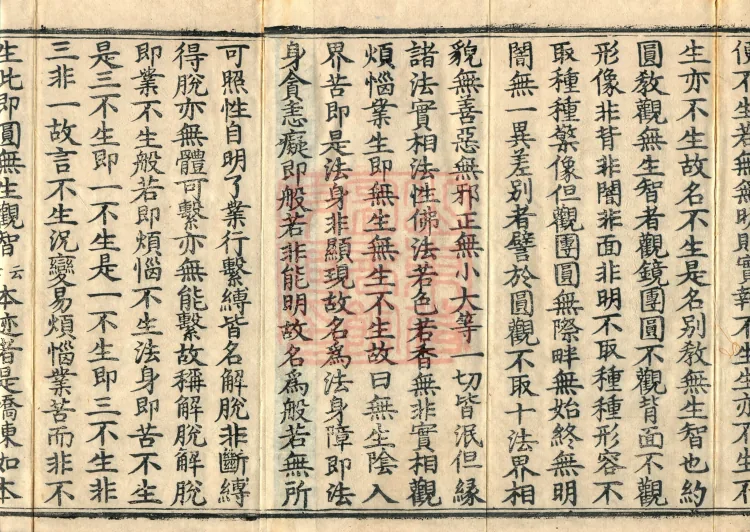 便不生若無無明即實報不生生亦不生不
生亦不生故名不生是名別教無生智也約
圓教觀無生智者觀鏡團圓不觀背面不觀
形像非背非闇非面非明不取種種形容不
取種種像但觀團圓無際畔無始終無明
闇無一異差別者譬於圓觀不取十法界相
貌無善惡無邪正無小大等一切皆泯但緣
諸法實相法性佛法若色若香無非實相觀
煩惱業生即無生無生不生故曰無生陰入
界苦即是法身非顯現故名為法身障即法
身貪恚癡即般若非能明故名為般若無所
可照性自明了業行繫縛皆名解脫非斷縛
得脫亦無體可繫亦無能繫故稱解脫解脫
即業不生般若即煩惱不生法身即苦不生
是三不生即一不生是一不生即三不生非
三非一故言不生況變易煩惱業苦而非不
生此即圓無生觀智云本迹者是憍東如本